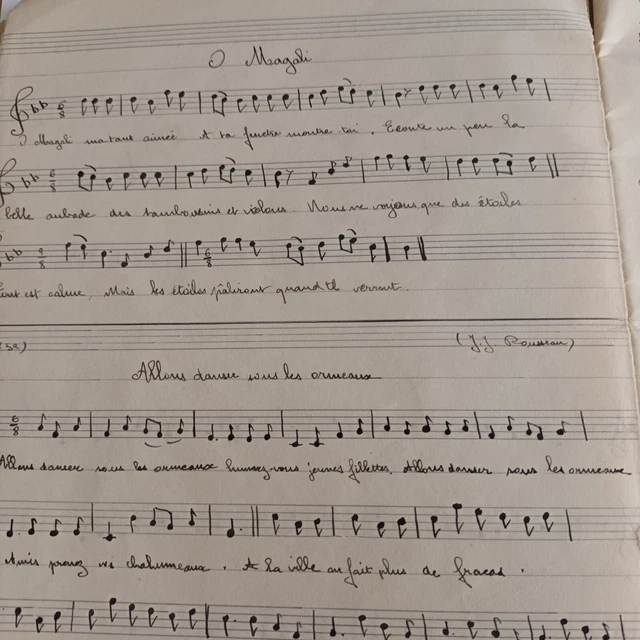 O Magali
O Magali ma tant aimée A ta fenetre montre toi. Ecoute un peu la
belle aubade des tambourins et violons Nous ne voyons que des étoiles
est calme, Mais les étoiles paliront quand te verront.
(J.J Rousseau)
Allons danser sous les ormeaux
Allons danser sous les ormeaux jeunes fillettes. Allons danser sous les ormeaux
Amis prenez vos chalumeaux. A la ville on fait plus de fracas.